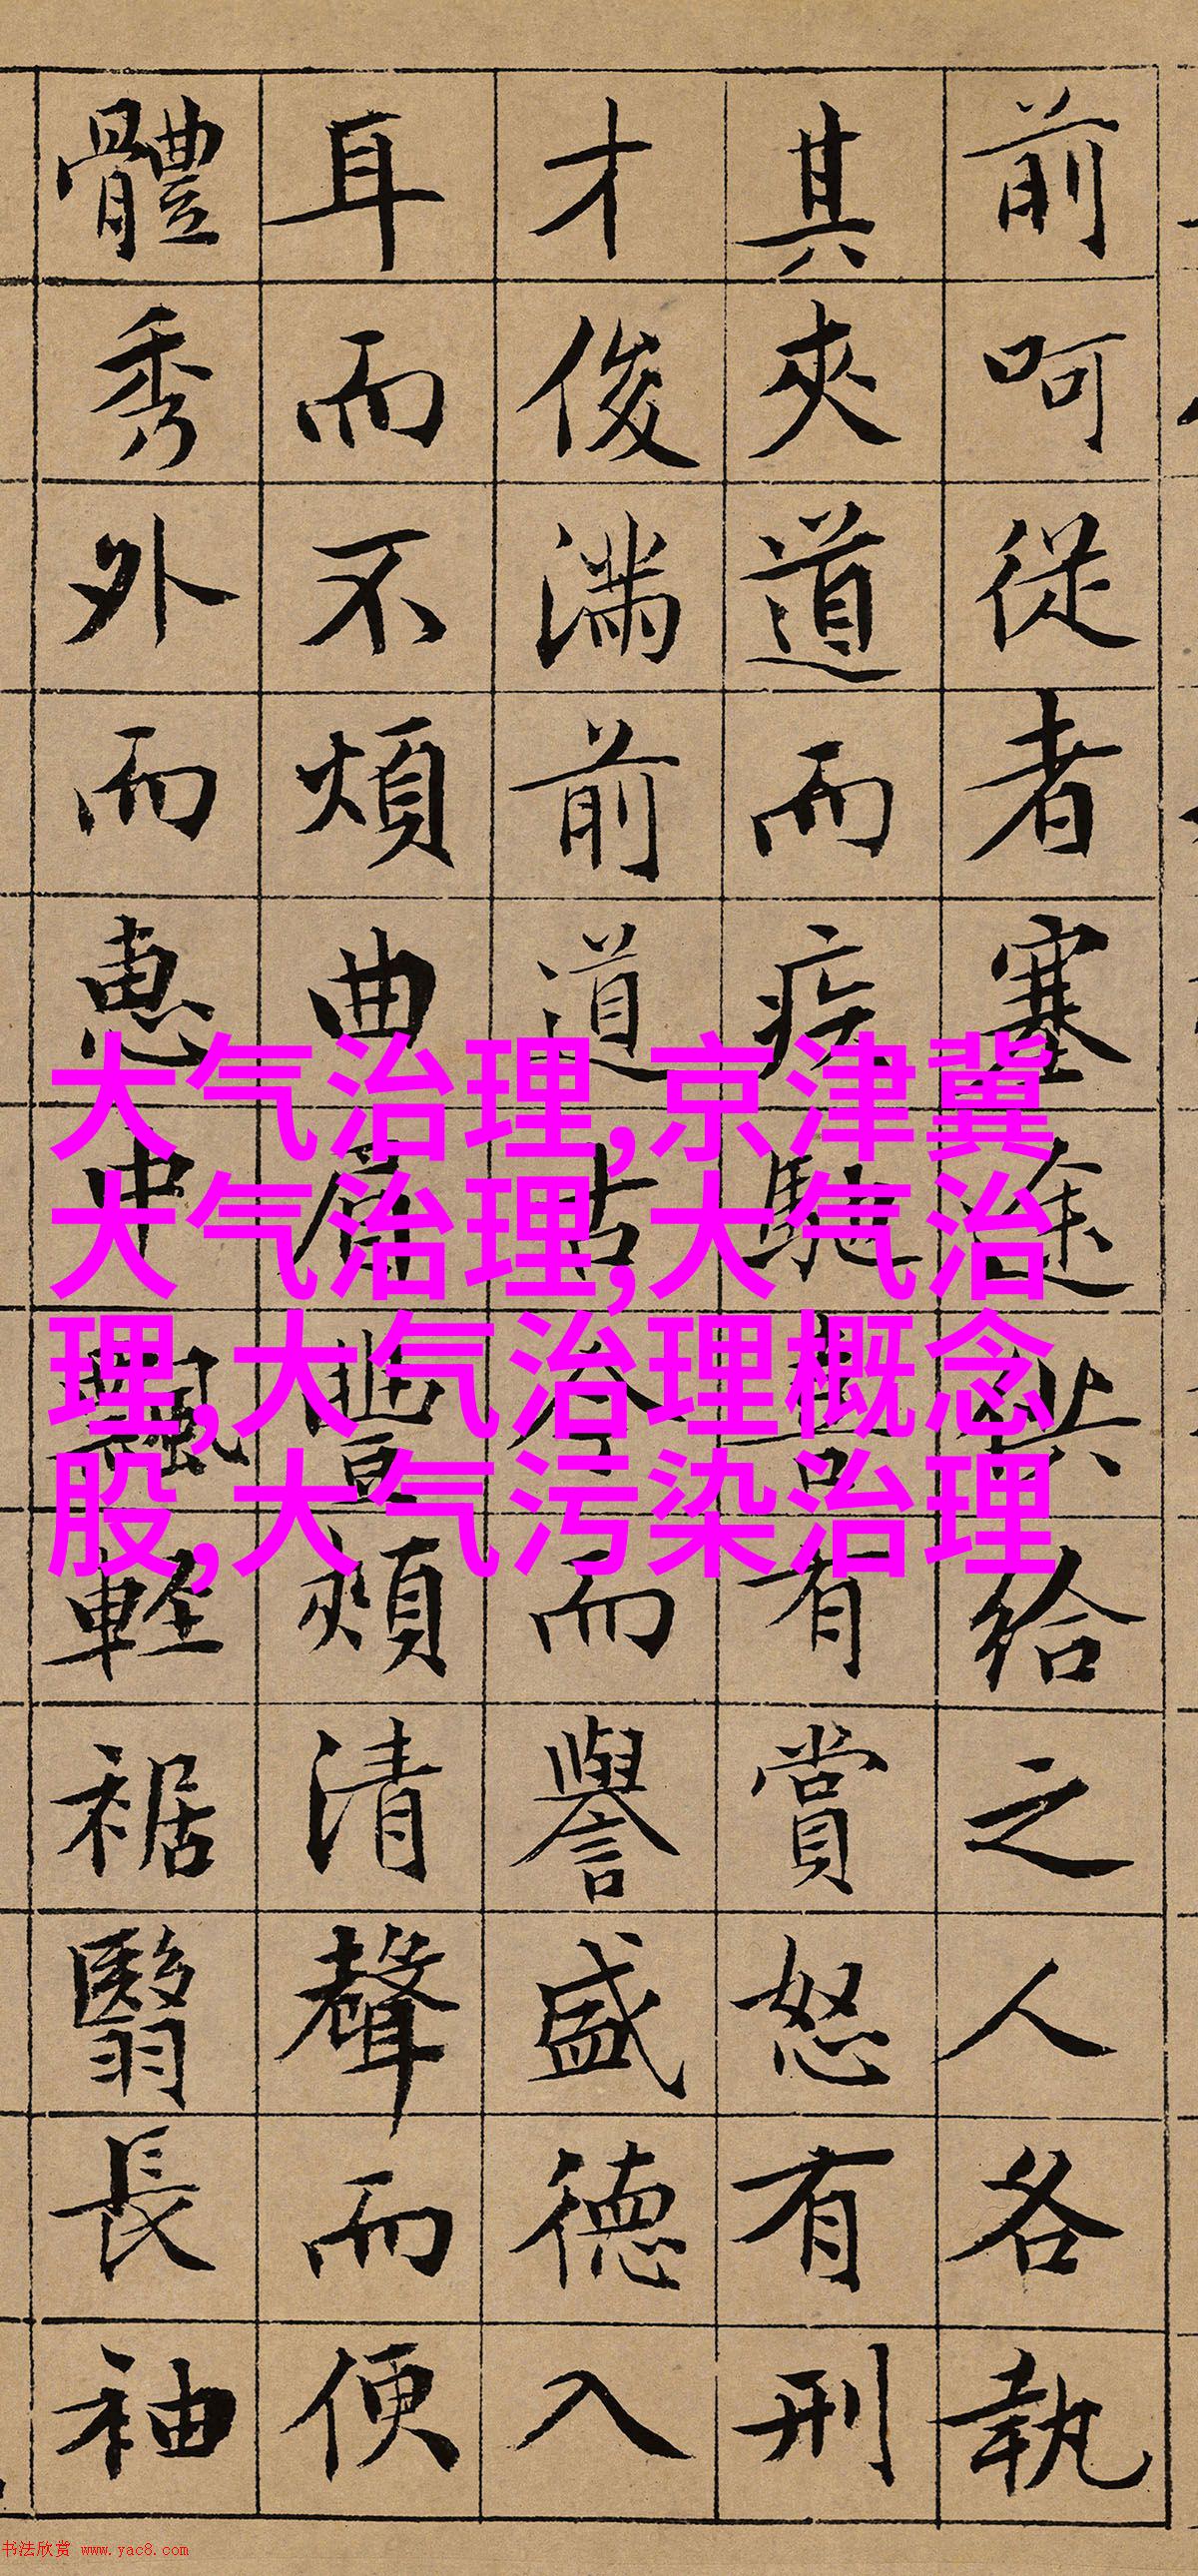 前呵從者塞途供給之人各執
其夾道而疾馳喜有賞怒有刑
才俊滿前道古今而譽盛德入
耳而不煩曲眉豐頰清聲而便
體秀外而惠中飄輕裾翳長袖
大气治理,京津冀
大气治理,大气治
理,大气治理概念
股,大气污染治理
书法欣赏 www.yac8.com